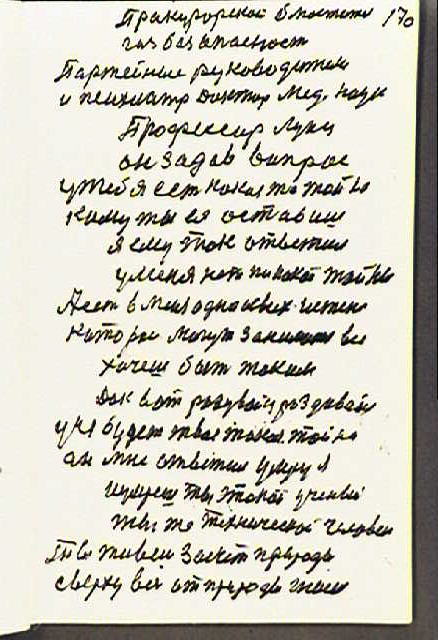 Пракурорской властети 170
газ безопасност
Партейные руководители
и психиатр Доктор Мед, наук
Професеир Луки
он задав вопрос
у тебя ест какая то тайна
кому ты её оставиш
я ему так ответил
у меня нет никакой тайны
А ест в меня
которое могут
хочеш быт таким
Дак вот разувай раздавай
у тя будет твая такая тайна
ан мне ответил я
ты этакой ученый
ты же технической человек
Ты живеш за счёт природы
сверху все от природы